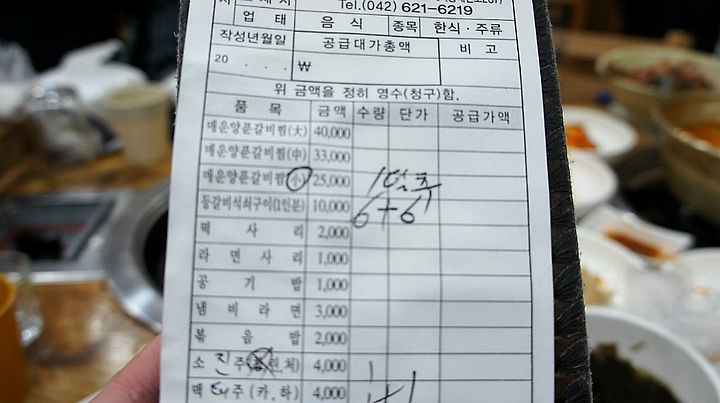 Tel.(042) 621-6219
업 태 음 식 종목 한식·주류
작성년월일 공급대가총액 비 고
20 . . . ₩
위 금액을 정히 영수(청구)함.
품 목 금액 수량 단가 공급가액
매운양푼갈비찜(大) 40,000
매운양푼갈비찜(中) 33,000
매운양푼갈비찜(小) 25,000
등갈비석쇠구이(1인분) 10,000
6+6
떡 사 리 2,000
라 면 사 리 1,000
공 기 밥 1,000
냄 비 라 면 3,000
볶 음 밥 2,000
소 진 주 린,처) 4,000
맥 주 (카,하) 4,000